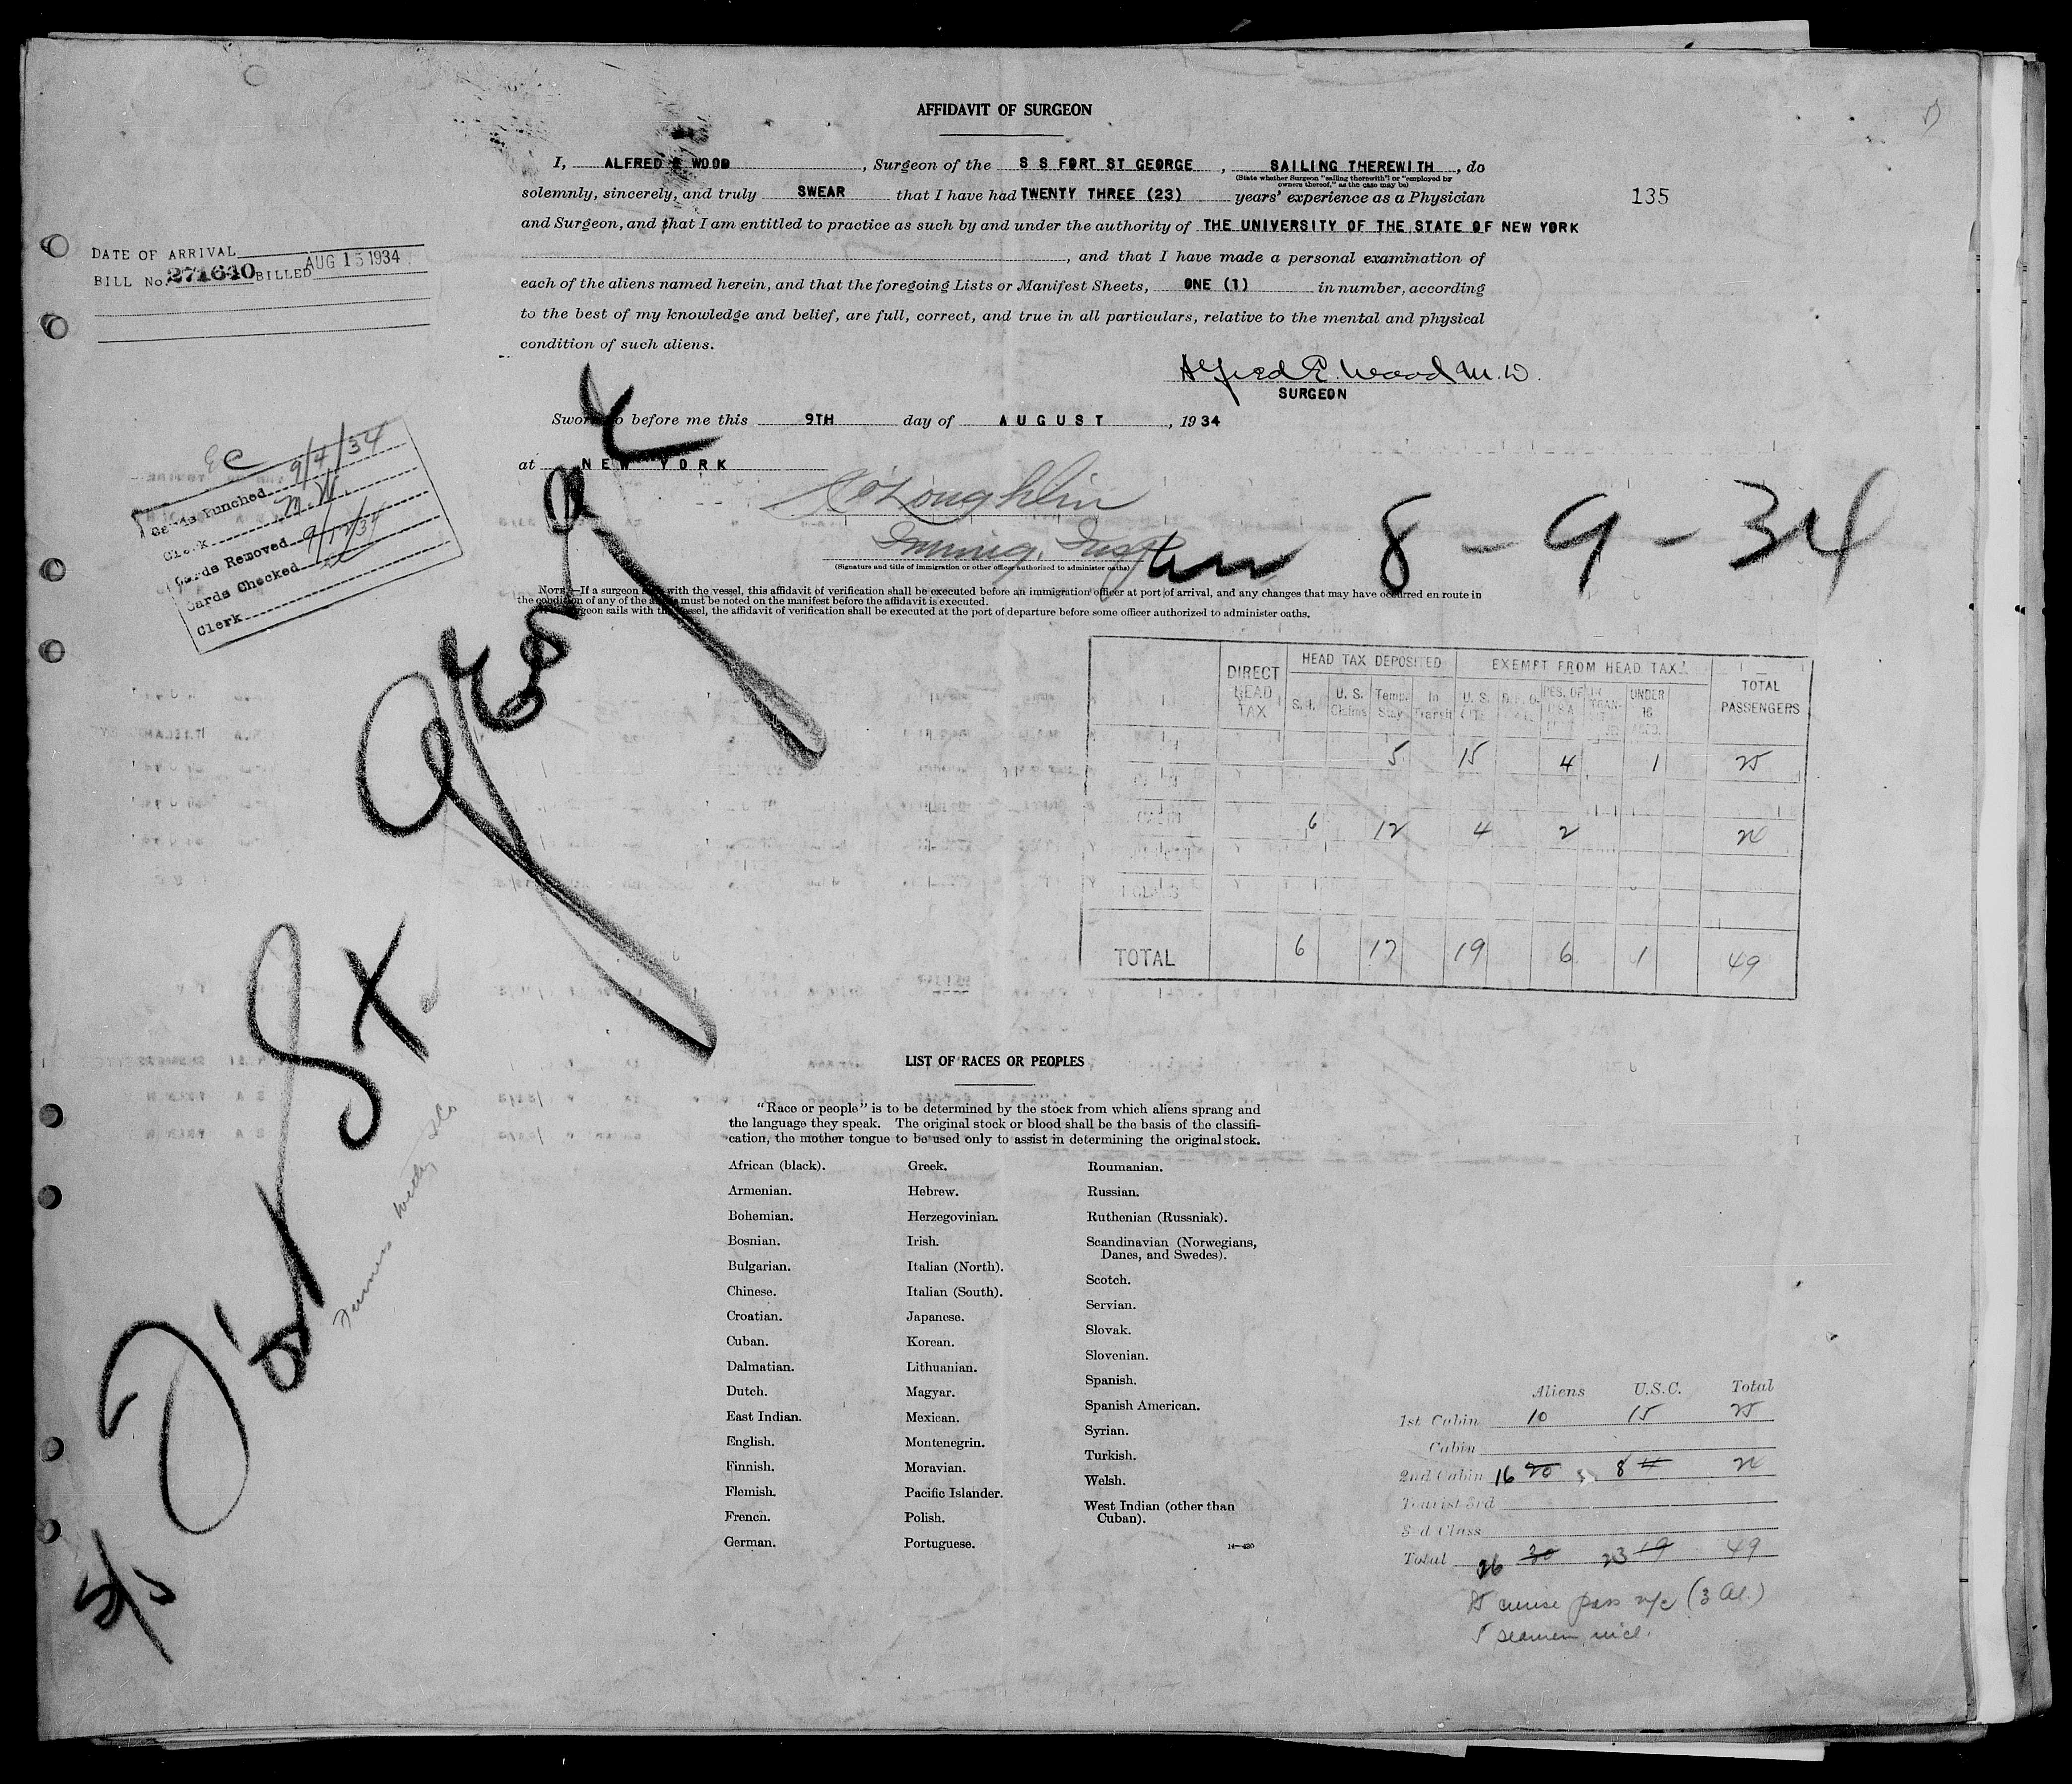 AFFIDAVIT OF SURGEON
I, ALFRED E WOOD, Surgeon of the S S FORT ST GEORGE, SAILING THEREWITH, do
(State whether Surgeon "sailing therewith" or "employed by
owners thereof," as the case may be)
solemnly, sincerely, and truly SWEAR that I have had TWENTY THREE (23) years' experience as a Physician
135
and Surgeon, and that I am entitled to practice as such by and under the authority of THE UNIVERSITY OF THE STATE OF NEW YORK
, and that I have made a personal examination of
each of the aliens named herein, and that the foregoing Lists or Manifest Sheets, ONE (1) in number, according
to the best of my knowledge and belief, are full, correct, and true in all particulars, relative to the mental and physical
condition of such aliens.
Alfred E. Wood M.D.
SURGEON
Sworn to before me this 9TH day of AUGUST, 1934
at NEW YORK
DATE OF ARRIVAL
BILL No. 271630 BILLED AUG 15 1934
Cards Punched 9/4/34
Clerk
Cards Removed
Cards Checked
Clerk
O'Loughlin
Immig. Insp
(Signature and title of immigration or other officer authorized to administer oaths)
8-9-34
NOTE.—If a surgeon sails with the vessel, this affidavit of verification shall be executed before an immigration officer at port of arrival, and any changes that may have occurred en route in
the condition of any of the aliens must be noted on the manifest before the affidavit is executed.
If no surgeon sails with the vessel, the affidavit of verification shall be executed at the port of departure before some officer authorized to administer oaths.
S/S Fort St. George
Furness Withy & Co
DIRECT HEAD TAX HEAD TAX DEPOSITED EXEMPT FROM HEAD TAX TOTAL PASSENGERS
U. S. Claims Temp. Stay In Transit U. S. UNDER 16
5 15 4 1 25
6 12 4 2 24
TOTAL 6 17 19 6 1 49
LIST OF RACES OR PEOPLES
"Race or people" is to be determined by the stock from which aliens sprang and
the language they speak. The original stock or blood shall be the basis of the classifi-
cation, the mother tongue to be used only to assist in determining the original stock.
African (black).
Armenian.
Bohemian.
Bosnian.
Bulgarian.
Chinese.
Croatian.
Cuban.
Dalmatian.
Dutch.
East Indian.
English.
Finnish.
Flemish.
French.
German.
Greek.
Hebrew.
Herzegovinian.
Irish.
Italian (North).
Italian (South).
Japanese.
Korean.
Lithuanian.
Magyar.
Mexican.
Montenegrin.
Moravian.
Pacific Islander.
Polish.
Portuguese.
Roumanian.
Russian.
Ruthenian (Russniak).
Scandinavian (Norwegians,
Danes, and Swedes).
Scotch.
Servian.
Slovak.
Slovenian.
Spanish.
Spanish American.
Syrian.
Turkish.
Welsh.
West Indian (other than
Cuban).
14—430
Aliens U.S.C. Total
1st Cabin 10 15 25
Cabin
2nd Cabin 16 20 8 4 24
Tourist 3rd
3rd Class
Total 26 30 23 19 49
cruise pass (3 al.)
5 seamen incl.